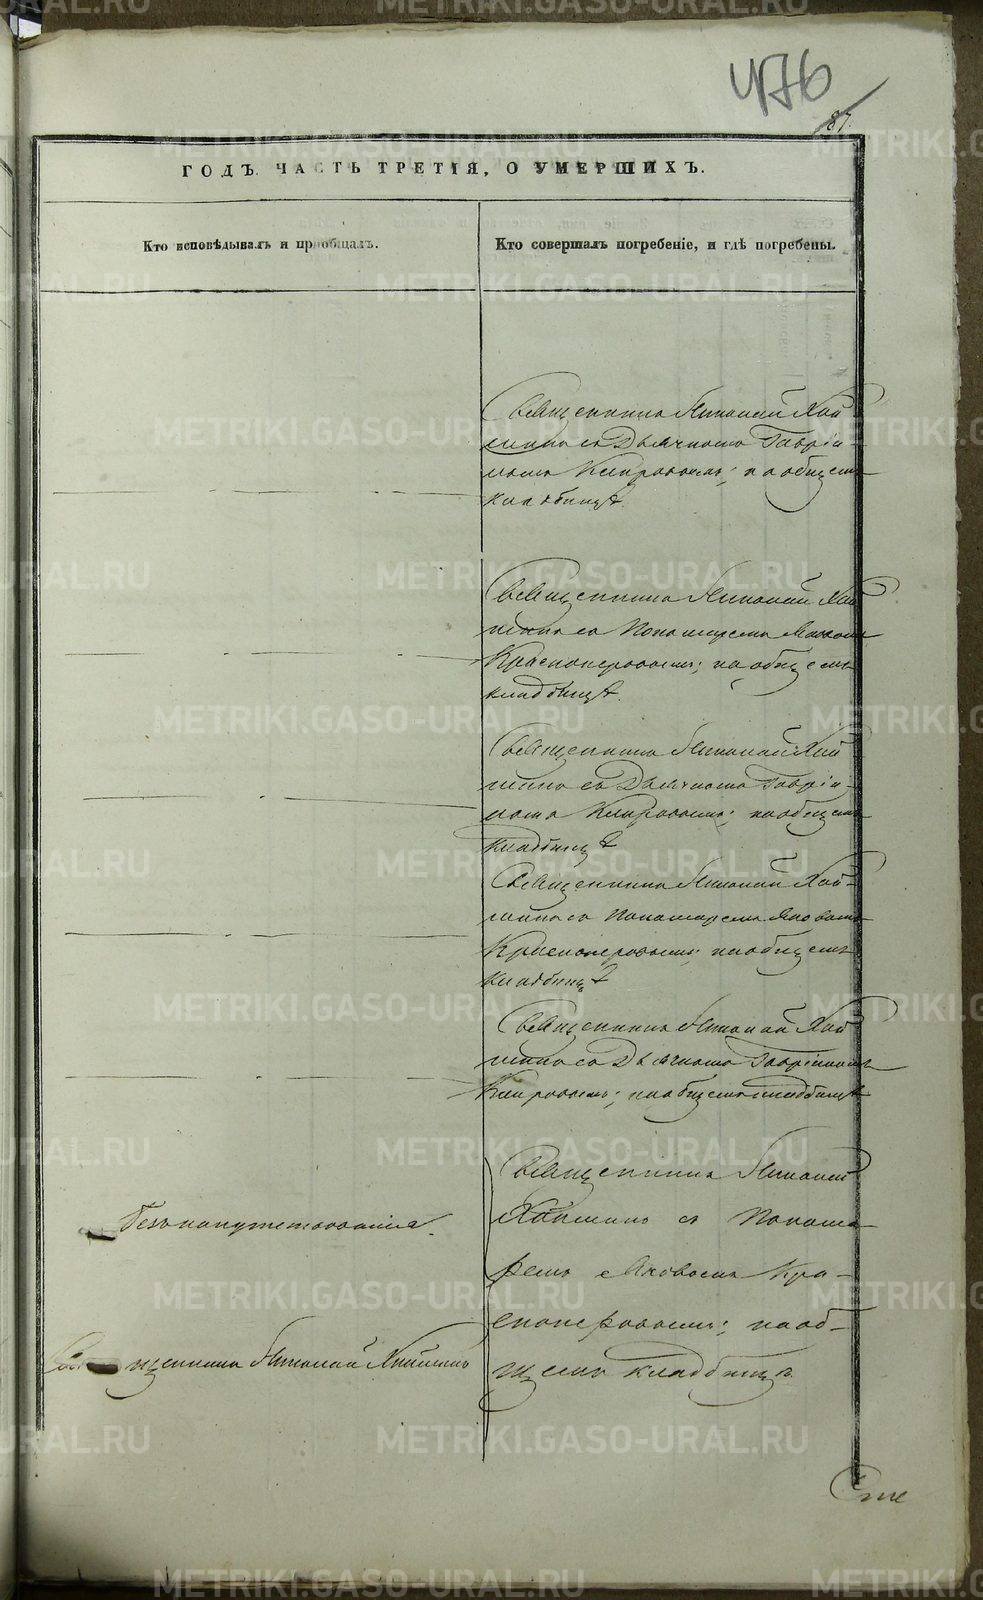 476
87.
ГОДЪ. ЧАСТЬ ТРЕТІЯ, О УМЕРШИХЪ.
Кто исповѣдывалъ и пріобщалъ.
Кто совершалъ погребеніе, и гдѣ погребены.
Священникъ Николай
съ Дьячкомъ Гаврі-
ломъ Кипровымъ; на общемъ
кладбищѣ.
Священникъ Николай
съ Пономаремъ Яковомъ
Красноперовымъ; на общемъ
кладбищѣ.
Священникъ Николай
съ Дьячкомъ Гаврі-
ломъ Кипровымъ; на общемъ
кладбищѣ
Священникъ Николай
съ Пономаремъ Яковомъ
Красноперовымъ; на общемъ
кладбищѣ
Священникъ Николай
съ Дьячкомъ Гавріиломъ
Кипровымъ; на общемъ кладбищѣ
Безъ напутствованія.
Священникъ Николай
съ Понома-
ремъ Яковомъ Кра-
сноперовымъ; на об-
щемъ кладбищѣ.
Священникъ Николай
METRIKI.GASO-URAL.RU